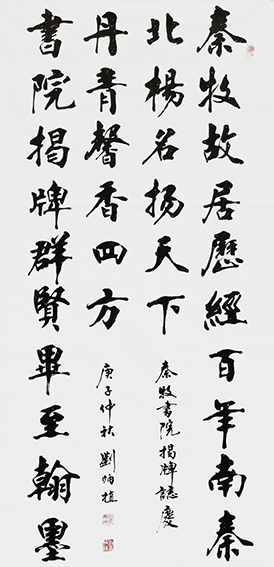 秦牧故居歷經百年南秦
北楊名揚天下
秦牧書院揭牌誌慶
書院揭牌群賢畢至翰墨
丹青馨香四方
庚子仲秋 劉炳植